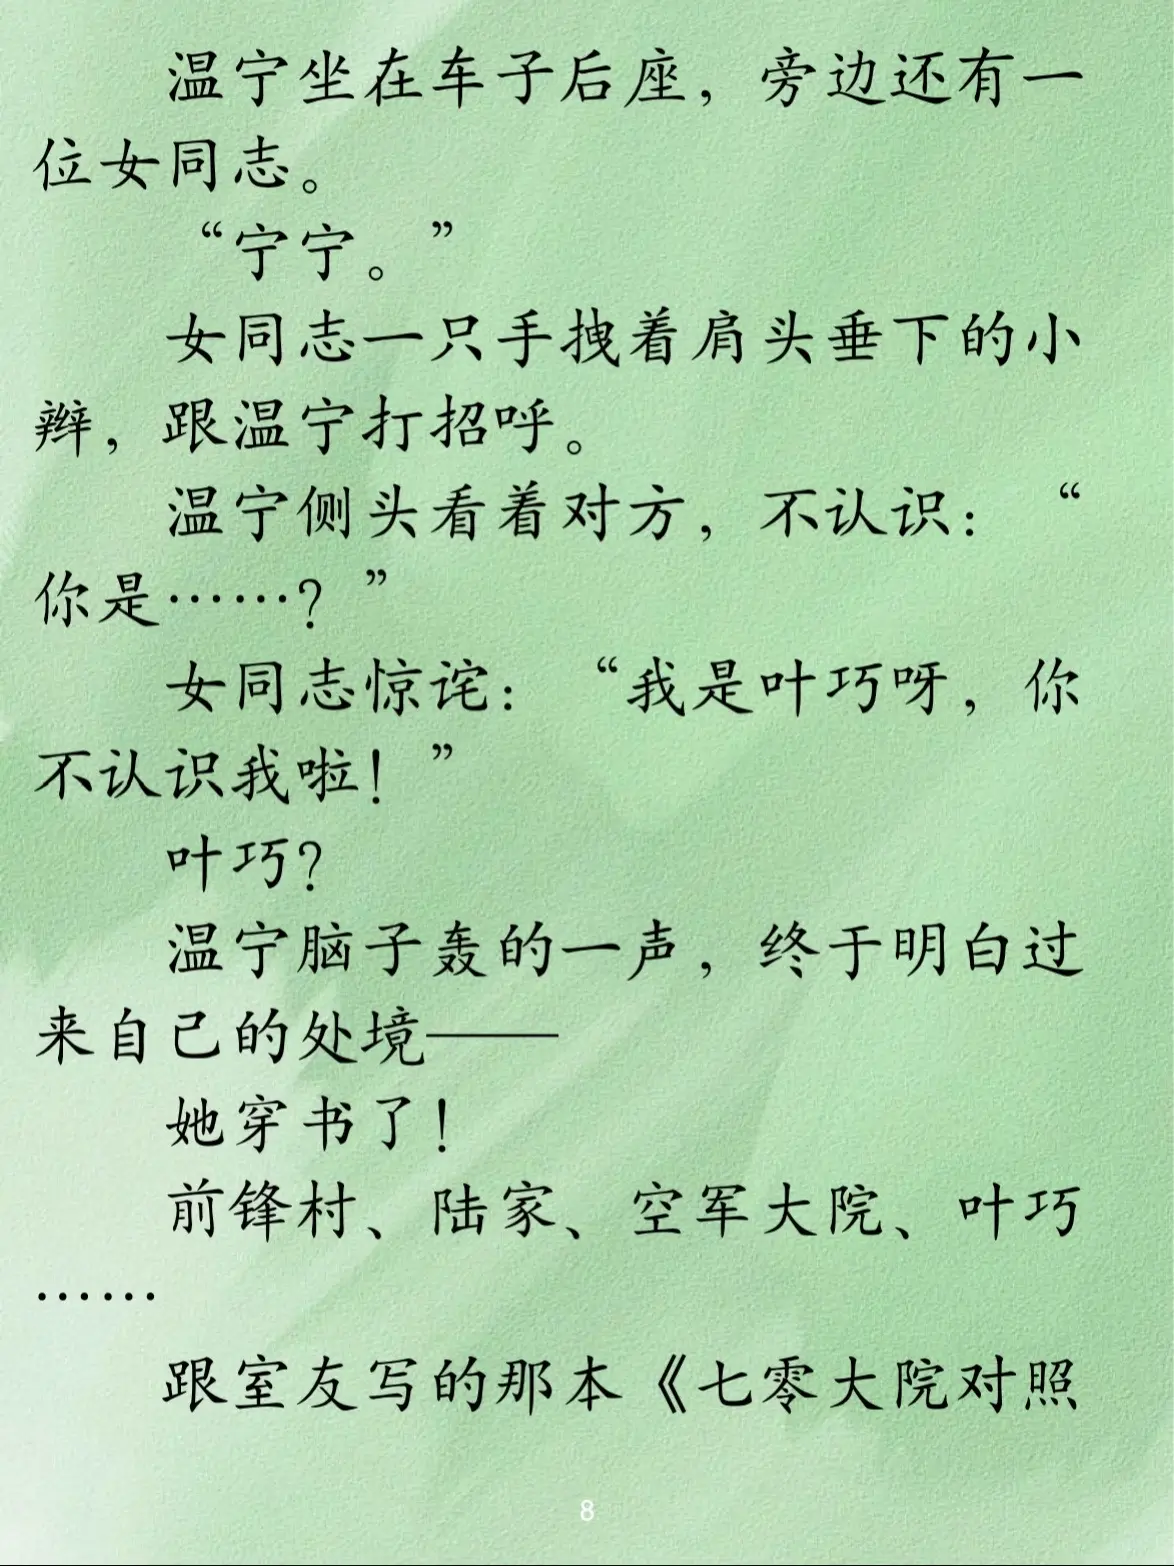 温宁坐在车子后座，旁边还有一
位女同志。
“宁宁。”
女同志一只手拽着肩头垂下的小
辫，跟温宁打招呼。
温宁侧头看着对方，不认识：“
你是……？”
女同志惊诧：“我是叶巧呀，你
不认识我啦！”
叶巧？
温宁脑子轰的一声，终于明白过
来自己的处境——
她穿书了！
前锋村、陆家、空军大院、叶巧
……
跟室友写的那本《七零大院对照
8